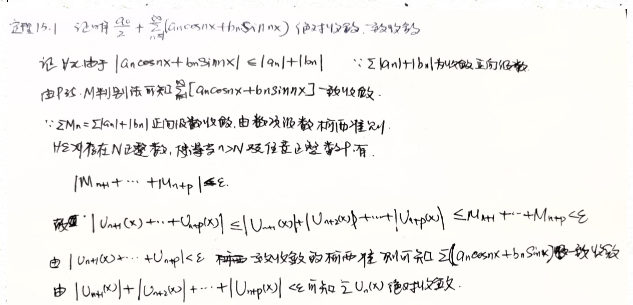 定理15.1 证明 a₀/2 + ∑(ancosnx+bnsinnx) 绝对收敛、一致收敛
证 ∀x 由于 |ancosnx+bnsinnx| ≤ |an|+|bn| ∵ ∑|an|+|bn|为收敛正项级数
由P35. M判别法可知 ∑[ancosnx+bnsinnx] 一致收敛.
∵ ∑Mn=∑|an|+|bn| 正项级数收敛, 由数项级数柯西准则.
∀ε 存在N正整数, 使得当n>N 及任意正整数p 有.
|Mn+1+⋯+Mn+p|<ε.
|Un+1(x)+⋯+Un+p(x)| ≤ |Un+1(x)|+|Un+2(x)|+⋯+|Un+p(x)| ≤ Mn+1+⋯+Mn+p<ε
由 |Un+1(x)+⋯+Un+p|<ε 一致收敛的柯西准则可知 ∑(ancosnx+bnsinnx) 一致收敛
由 |Un+1(x)|+|Un+2(x)|+⋯+|Un+p(x)| <ε 可知 ∑Un(x) 绝对收敛.